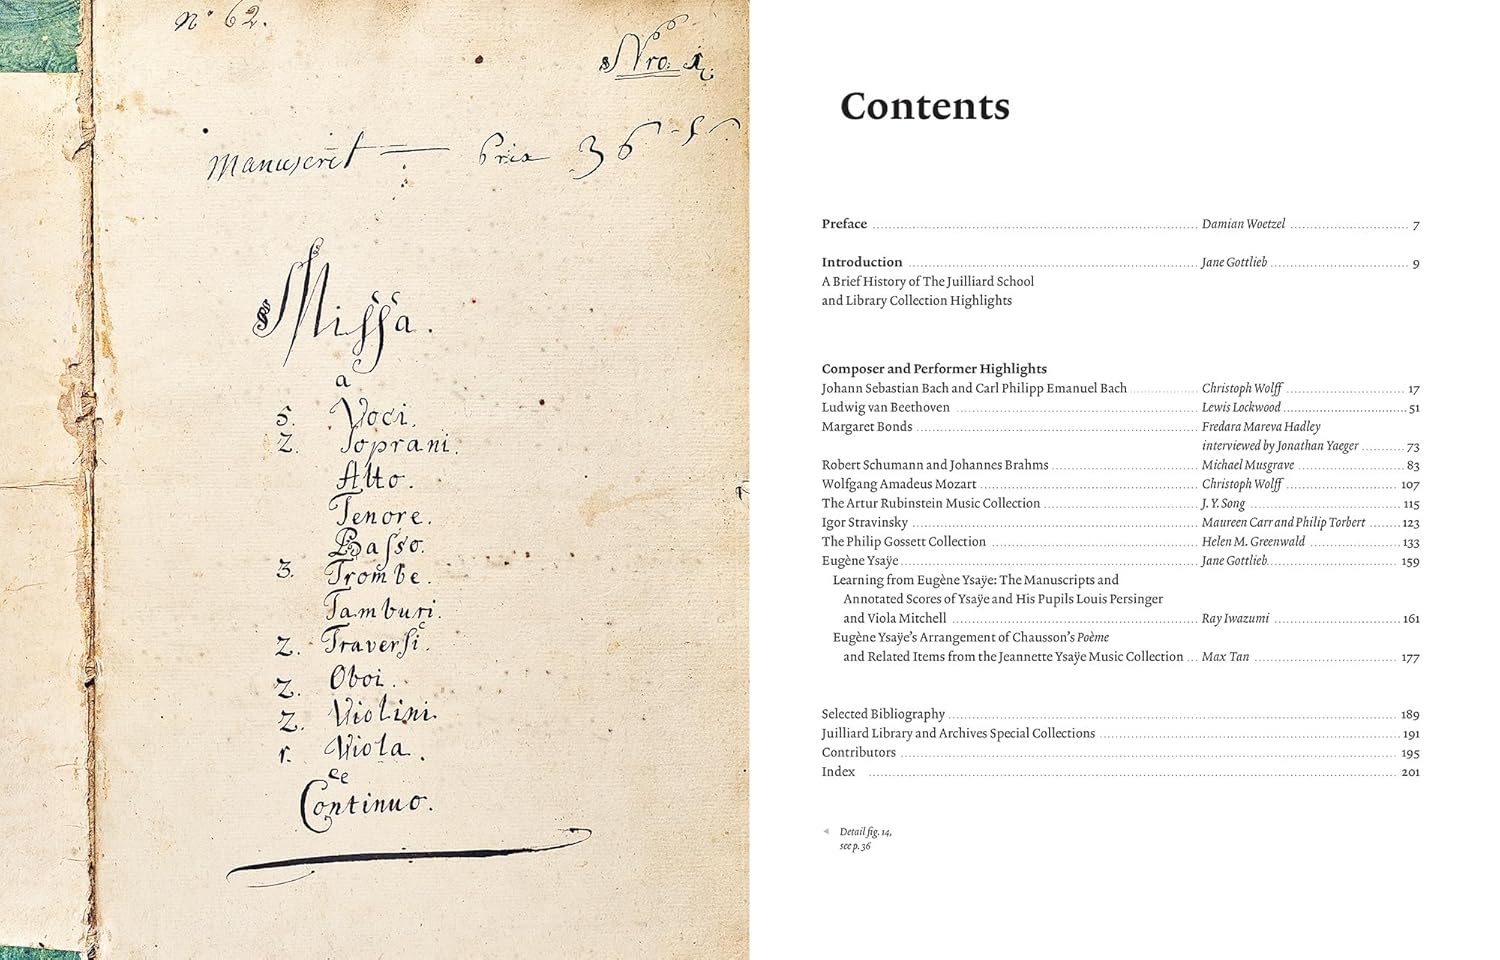 N° 62.
Nro. 1.
Manuscrit = Prix 36
Missa.
a
5. Voci.
2. Soprani.
Alto.
Tenore.
Basso.
3. Trombe.
Tamburi.
2. Traversi.
2. Oboi.
2. Violini.
1. Viola.
e
Continuo.
Contents
Preface Damian Woetzel 7
Introduction Jane Gottlieb 9
A Brief History of The Juilliard School
and Library Collection Highlights
Composer and Performer Highlights
Johann Sebastian Bach and Carl Philipp Emanuel Bach Christoph Wolff 17
Ludwig van Beethoven Lewis Lockwood 51
Margaret Bonds Fredara Mareva Hadley
interviewed by Jonathan Yaeger 73
Robert Schumann and Johannes Brahms Michael Musgrave 83
Wolfgang Amadeus Mozart Christoph Wolff 107
The Artur Rubinstein Music Collection J. Y. Song 115
Igor Stravinsky Maureen Carr and Philip Torbert 123
The Philip Gossett Collection Helen M. Greenwald 133
Eugène Ysaÿe Jane Gottlieb 159
Learning from Eugène Ysaÿe: The Manuscripts and
Annotated Scores of Ysaÿe and His Pupils Louis Persinger
and Viola Mitchell Ray Iwazumi 161
Eugène Ysaÿe's Arrangement of Chausson's Poème
and Related Items from the Jeannette Ysaÿe Music Collection Max Tan 177
Selected Bibliography 189
Juilliard Library and Archives Special Collections 191
Contributors 195
Index 201
Detail fig. 14,
see p. 36